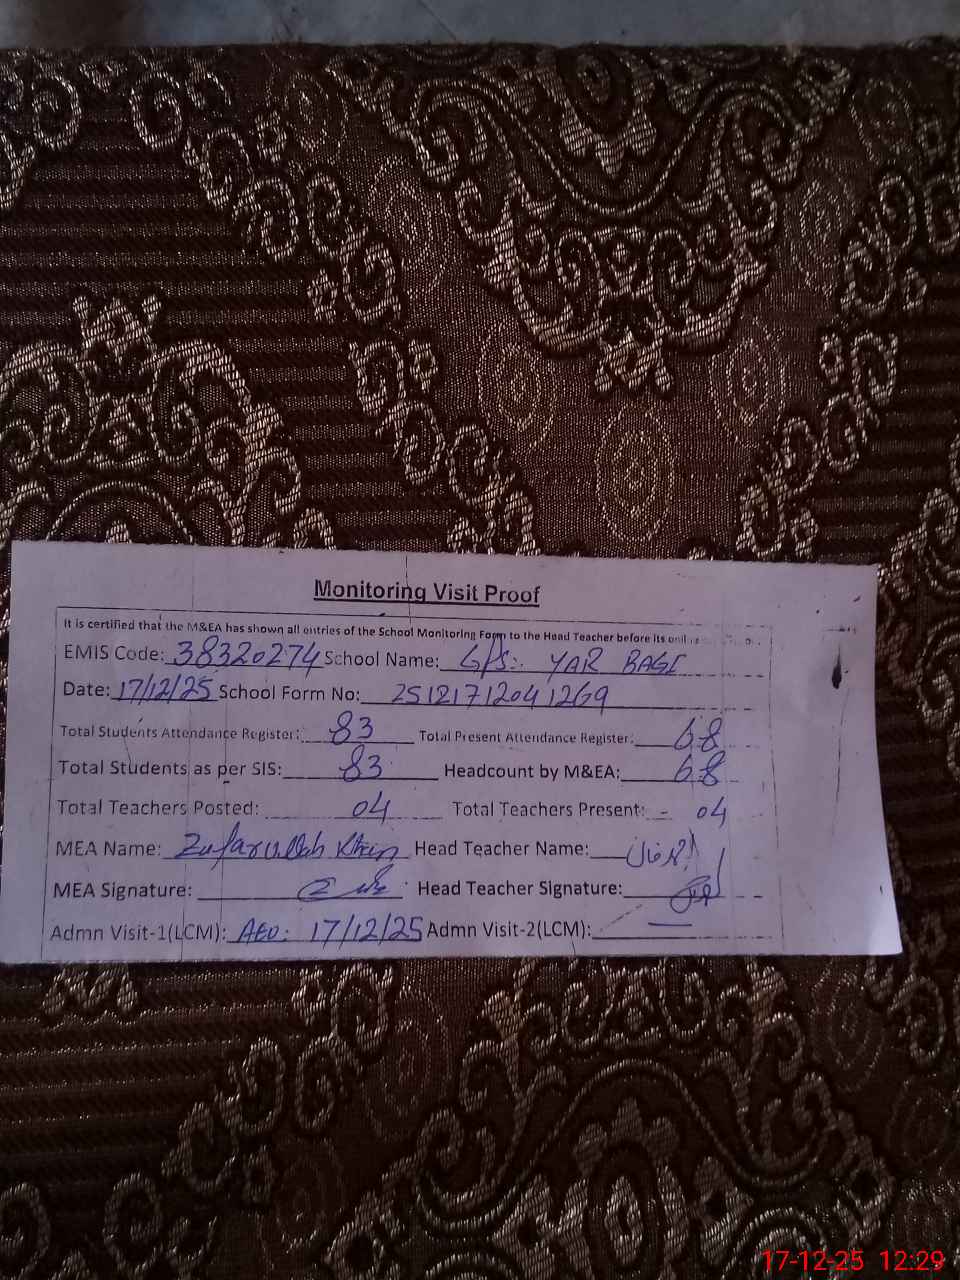 Monitoring Visit Proof
It is certified that the M&EA has shown all entries of the School Monitoring Form to the Head Teacher before its
EMIS Code: 38320274 School Name: G/PS: YAR BAGI
Date: 17/12/25 School Form No: 2512171204 1269
Total Students Attendance Register: 83 Total Present Attendance Register: 68
Total Students as per SIS: 83 Headcount by M&EA: 68
Total Teachers Posted: 04 Total Teachers Present: - 04
MEA Name: Zafarullah Khan Head Teacher Name:
MEA Signature: Head Teacher Signature:
Admn Visit-1(LCM): AEO: 17/12/25 Admn Visit-2(LCM): —
17-12-25 12:29